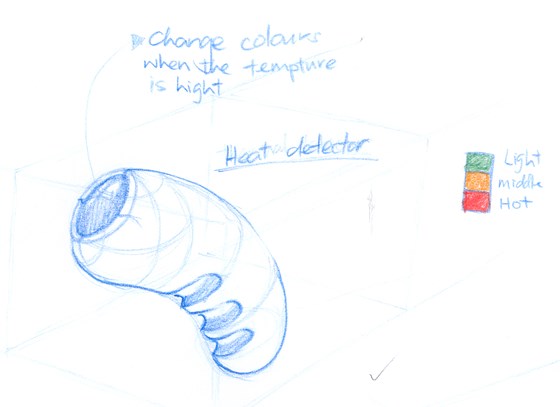 Change colours
when the tempture
is hight
Heat detector
Light
middle
Hot